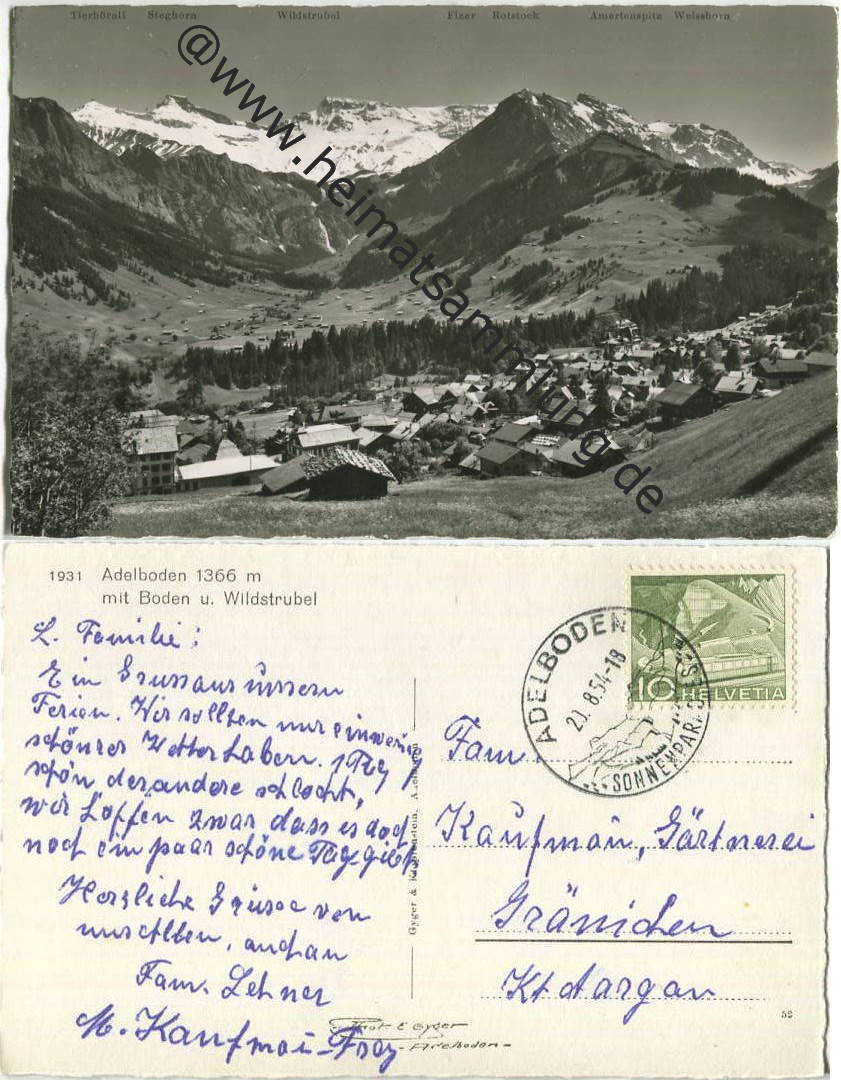 Tierhörnli Steghorn Wildstrubel Fizer Rotstock Amertenspitz Weisshorn
@www.heimatsammlung.de
1931 Adelboden 1366 m
mit Boden u. Wildstrubel
L. Familie:
Ein Gruss aus unsern
Ferien. Wir sollten nur ein wenig
schöneres Wetter haben. 1 Tag
schön der andere schlecht,
wir hoffen zwar dass es doch
noch ein paar schöne Tage gibt
Herzliche Grüsse von
uns allen, auch an
Fam. Lehner
M. Kaufman-Frey
Gyger & Klopfenstein, Adelboden
Phot E Gyger
-Adelboden-
ADELBODEN
8.54-18
SONNENPARADIES
10 HELVETIA
Fam.
Kaufman, Gärtnerei
Gränichen
Kt Aargau
52